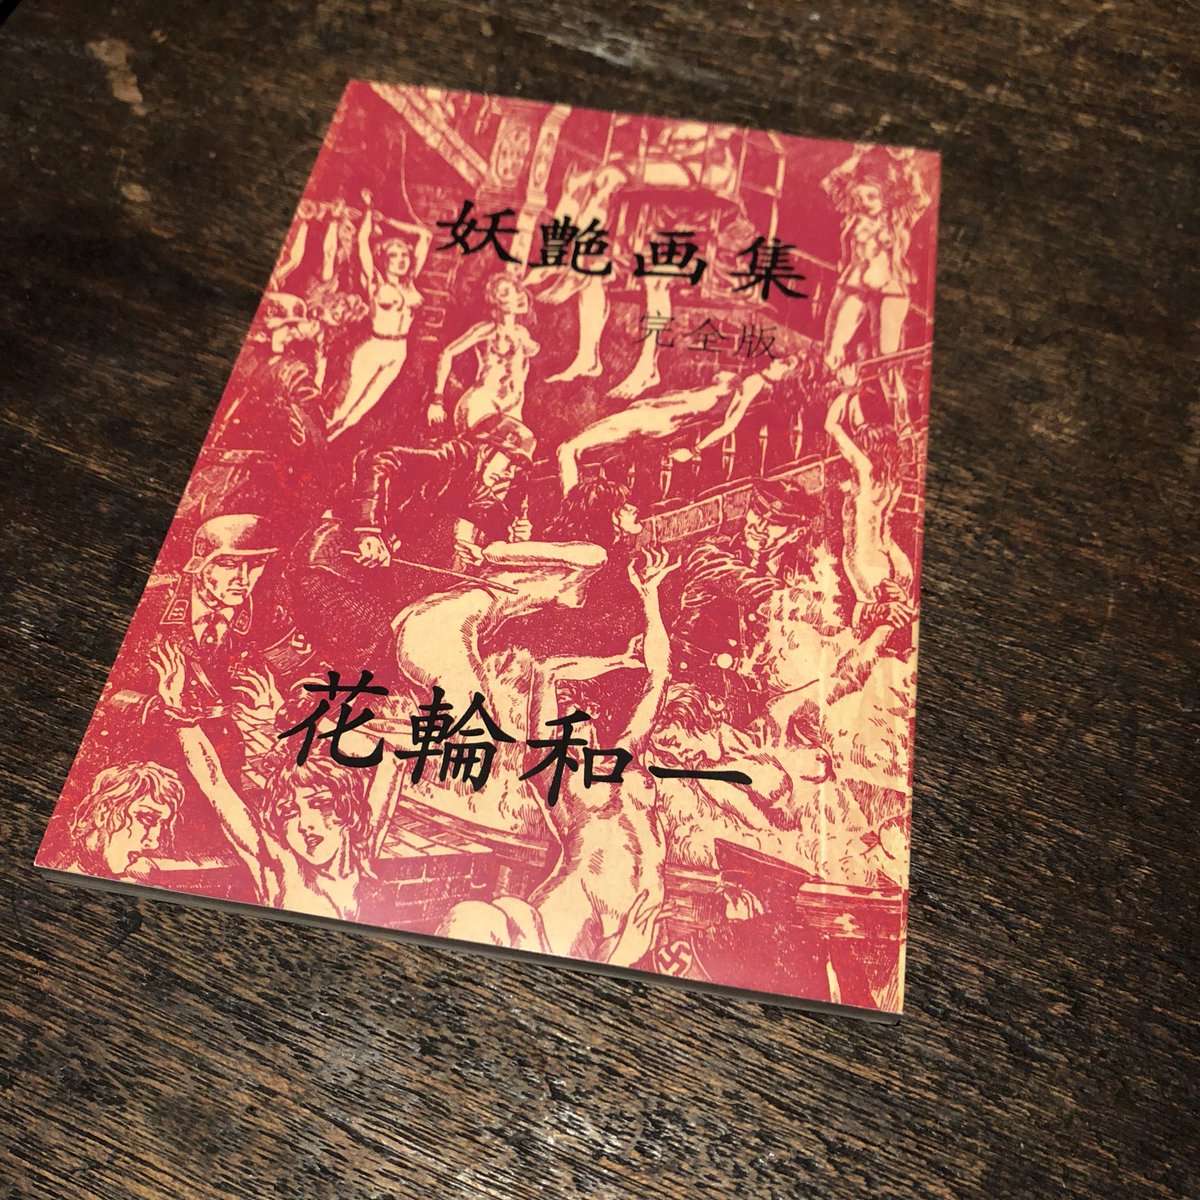 妖艶画集
完全版
花輪和一